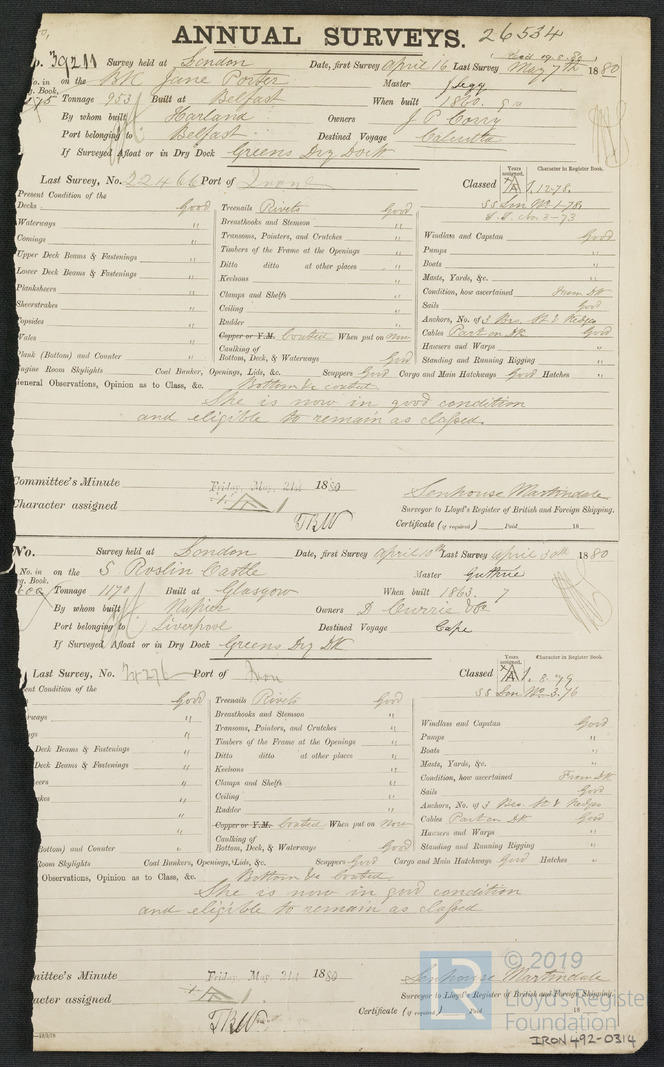 ANNUAL SURVEYS. 26534
39211 Survey held at London Date, first Survey April 16 Last Survey May 7th 1880
No. in on the BK Jane Porter Master
Book, 175 Tonnage 953 Built at Belfast When built 1860.
By whom built Harland Owners J P Corry
Port belonging to Belfast Destined Voyage Calcutta
If Surveyed Afloat or in Dry Dock Greens Dry Dock
Last Survey, No. 22466 Port of Iron Classed Years assigned. Character in Register Book.
A 1. 12.78.
SS Lon No. 1-78
Present Condition of the
Decks Good Treenails Rivets Good
Waterways " Breasthooks and Stemson " Windlass and Capstan Good
Comings " Transoms, Pointers, and Crutches " Pumps "
Upper Deck Beams & Fastenings " Timbers of the Frame at the Openings " Boats "
Lower Deck Beams & Fastenings " Ditto ditto at other places " Masts, Yards, &c. "
Planksheers " Keelsons " Condition, how ascertained From Dk
Sheerstrakes " Clamps and Shelfs " Sails Good
Topsides " Ceiling " Anchors, No. of 3 Bro. St & Kedges
Wales " Rudder " Cables Part on Dk Good
Copper or Y.M. Coated When put on Now Hawsers and Warps "
Plank (Bottom) and Counter " Caulking of Bottom, Deck, & Waterways Good Standing and Running Rigging "
Engine Room Skylights Coal Bunker, Openings, Lids, &c. Scuppers Good Cargo and Main Hatchways Good Hatches "
General Observations, Opinion as to Class, &c. Bottom &c coated
She is now in good condition
and eligible to remain as classed.
Committee's Minute Friday, May 21st 1880 Senhouse Martindale
Character assigned A 1 Surveyor to Lloyd's Register of British and Foreign Shipping.
TBW Certificate (if required) Paid 18
No. Survey held at London Date, first Survey April 10th Last Survey April 30th 1880
No. in on the S Roslin Castle Master Guthrie
Reg. Book. Tonnage 1170 Built at Glasgow When built 1863. 7
By whom built Napier Owners D Currie & Co
Port belonging to Liverpool Destined Voyage Cape
If Surveyed Afloat or in Dry Dock Greens Dry Dk
Last Survey, No. Port of Iron Classed Years assigned. Character in Register Book.
A 1. 8.79
SS Lon No. 3.76
ent Condition of the
Good Treenails Rivets Good
rways " Breasthooks and Stemson " Windlass and Capstan Good
gs " Transoms, Pointers, and Crutches " Pumps "
Deck Beams & Fastenings " Timbers of the Frame at the Openings " Boats "
Deck Beams & Fastenings " Ditto ditto at other places " Masts, Yards, &c. "
eers " Keelsons " Condition, how ascertained From Dk
akes " Clamps and Shelfs " Sails Good
" Ceiling " Anchors, No. of 3 Bro. St & Kedges
" Rudder " Cables Part on Dk Good
Copper or Y.M. Coated When put on Now Hawsers and Warps "
Bottom) and Counter " Caulking of Bottom, Deck, & Waterways Good Standing and Running Rigging "
Room Skylights Coal Bunkers, Openings, Lids, &c. Scuppers Good Cargo and Main Hatchways Good Hatches "
Observations, Opinion as to Class, &c. Bottom &c Coated
She is now in good condition
and eligible to remain as classed
mittee's Minute Friday, May 21st 1880 Senhouse Martindale
aracter assigned A 1. Surveyor to Lloyd's Register of British and Foreign Shipping.
TBW Certificate (if required) Paid 18
© 2019
LR Lloyd's Register
Foundation
IRON 492-0314